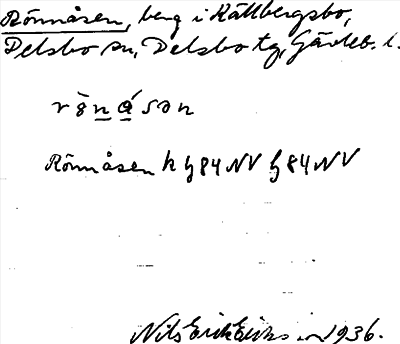 Rönnåsen, berg i Källbergsbo,
Delsbo sn, Delsbo tg, Gävleb. l.
rönåsan
Rönnåsen k bj 84 NV bj 84 NV
Nils Erik Eriksson 1936.